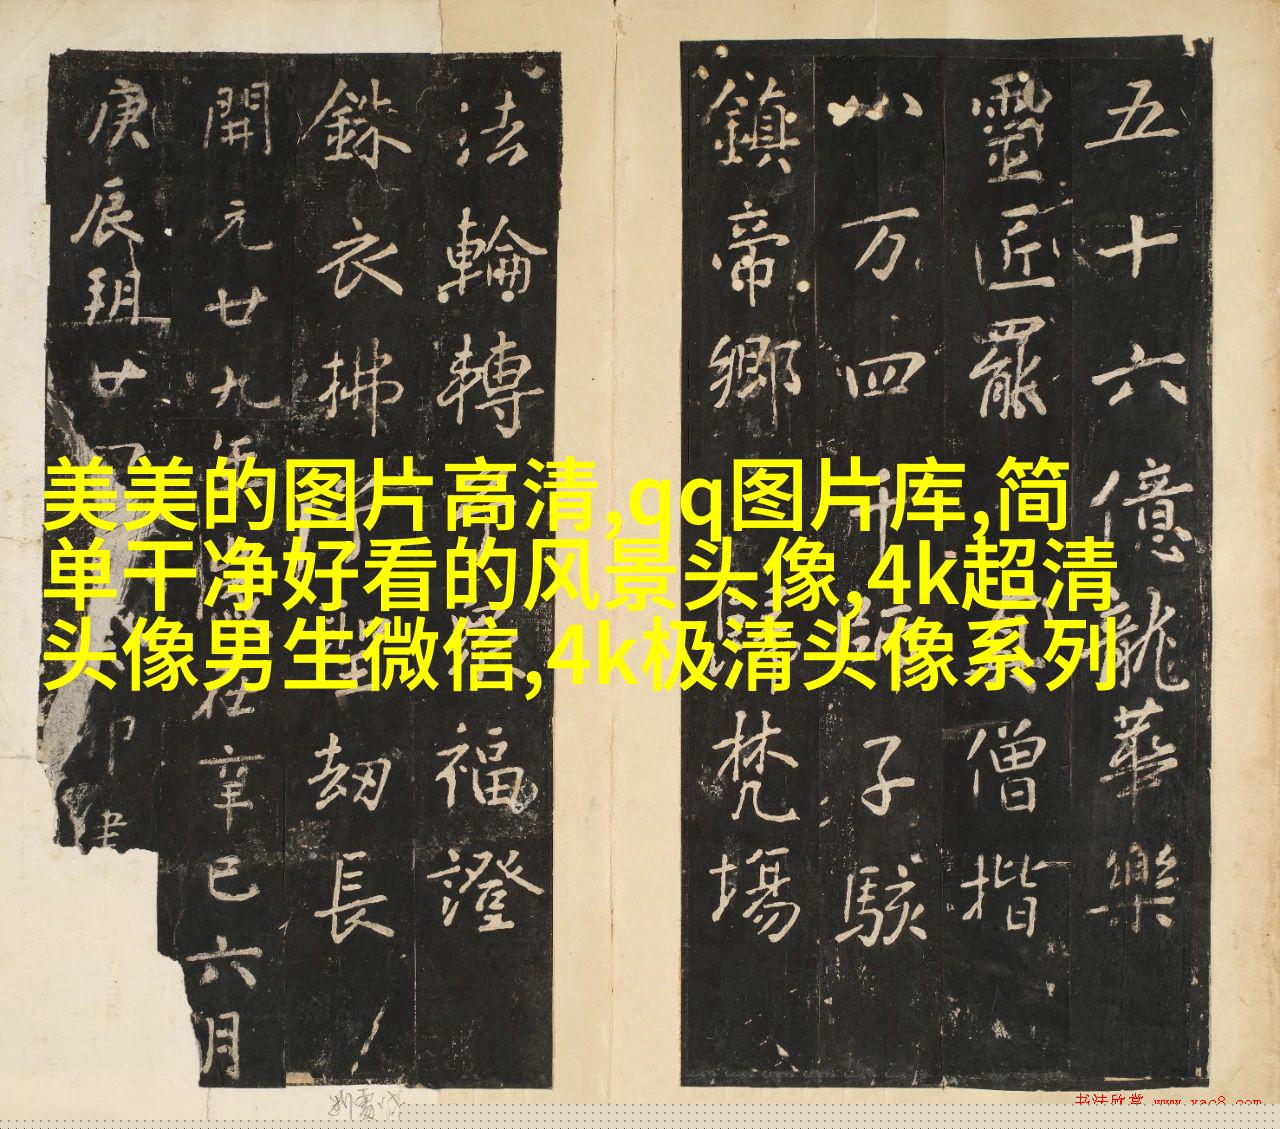 美美的图片高清,qq图片库,简
单干净好看的风景头像,4k超清
头像男生微信,4k极清头像系列
五十六億龍華樂
靈匠罷僧揩
八万四千師子駭
鎮帝鄉梵場
法輪轉福澄
銖衣拂劫長
開元廿九年在辛巳六月
庚辰玥廿
书法欣赏 www.yac8.com